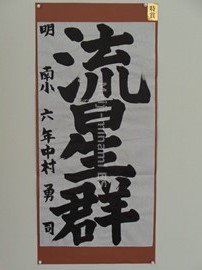 流星群
明南小 六年 中村勇司
特賞